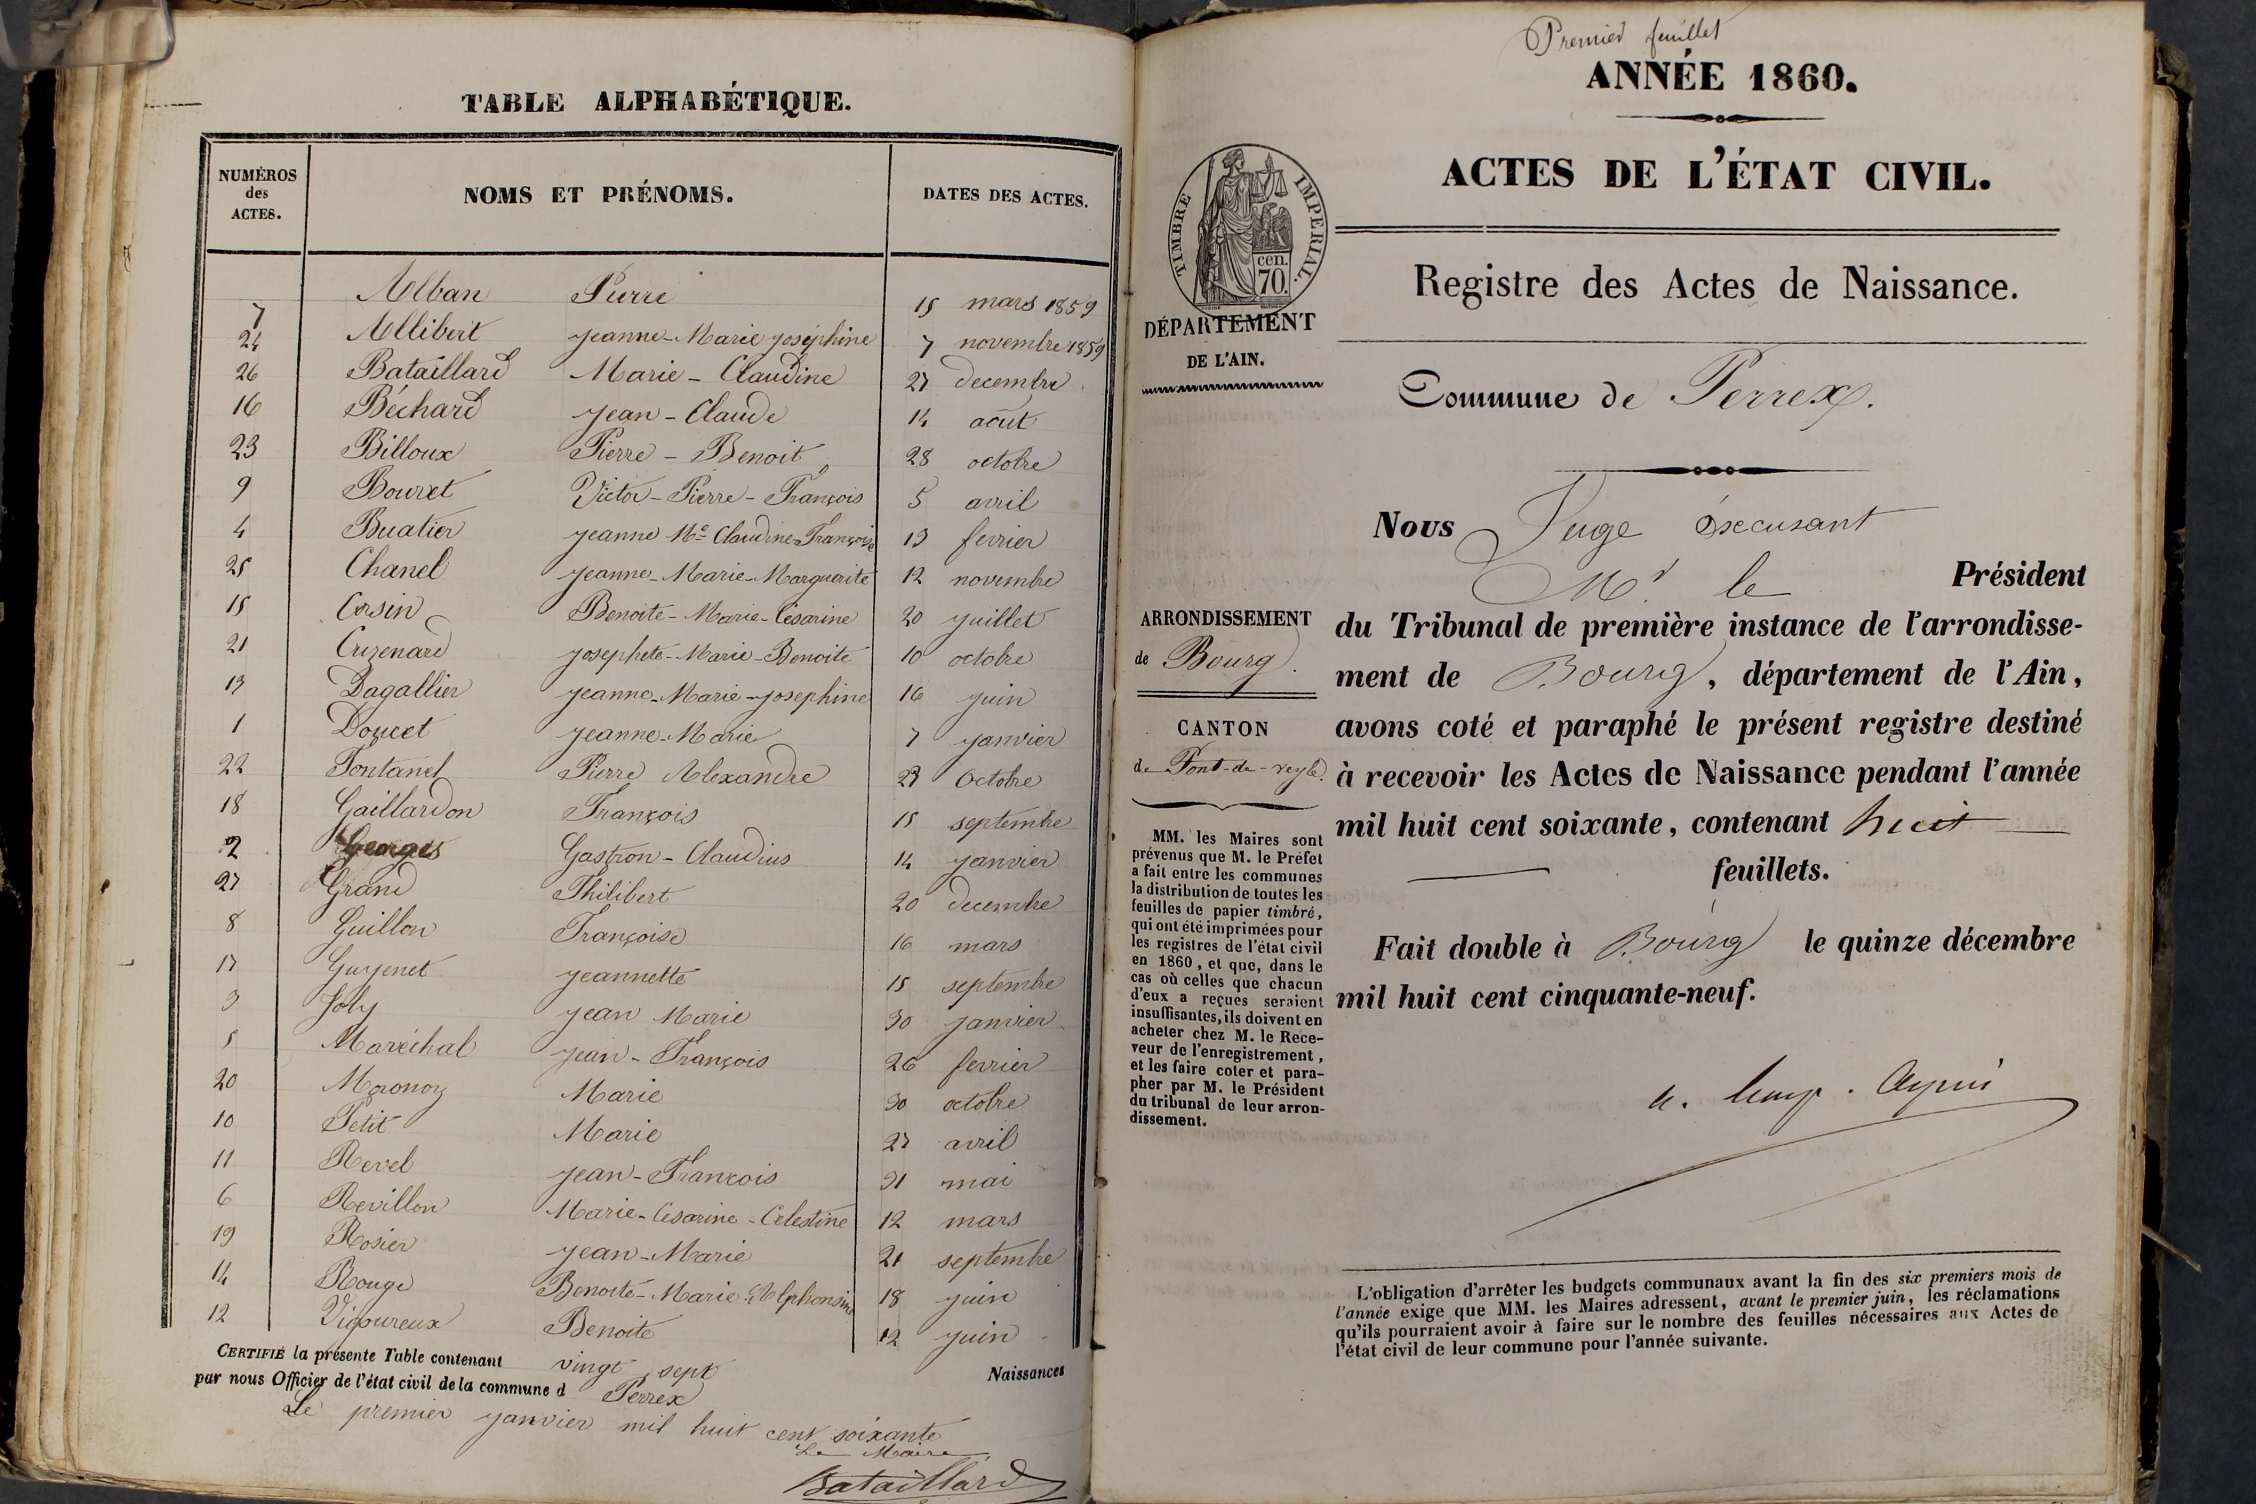 TABLE ALPHABÉTIQUE.
NUMÉROS des ACTES. NOMS ET PRÉNOMS. DATES DES ACTES.
7 Alban Pierre 15 mars 1859
24 Allibert Jeanne-Marie Joséphine 7 novembre 1859
26 Bataillard Marie-Claudine 27 decembre
16 Béchard Jean-Claude 14 août
23 Billoux Pierre-Benoit 28 octobre
9 Bouret Victor-Pierre-François 5 avril
4 Buatier Jeanne Mie Claudine-Françoise 13 fevrier
25 Chanel Jeanne-Marie-Marguerite 12 novembre
15 Corsin Benoite-Marie-Césarine 20 juillet
21 Crizenard Josephete-Marie-Benoite 10 octobre
13 Dagallier Jeanne-Marie-Josephine 16 juin
1 Doucet Jeanne-Marie 7 janvier
22 Fontanel Pierre Alexandre 23 Octobre
18 Gaillardon François 15 septembre
2 Georges Gastron-Claudius 14 janvier
27 Grand Philibert 20 decembre
8 Guillon Françoise 16 mars
17 Guyenet Jeannette 15 septembre
3 Joly Jean Marie 30 janvier
5 Maréchal Jean-François 26 fevrier
20 Moronoz Marie 30 octobre
10 Petit Marie 27 avril
11 Revel Jean-François 31 mai
6 Revillon Marie-Césarine-Celestine 12 mars
19 Rosier Jean-Marie 21 septembre
14 Rouge Benoite-Marie-Alphonsine 18 juin
12 Vigoureux Benoite 12 juin
CERTIFIÉ la présente Table contenant vingt sept Naissances
par nous Officier de l'état civil de la commune d Perrex
Le premier janvier mil huit cent soixante
Le Maire
Bataillard
Premier feuillet
ANNÉE 1860.
ACTES DE L'ÉTAT CIVIL.
TIMBRE IMPERIAL.
cen.
70.
Registre des Actes de Naissance.
DÉPARTEMENT
DE L'AIN.
Commune de Perrex.
Nous Juge excusant
Mr le Président
ARRONDISSEMENT
de Bourg.
CANTON
de Pont-de-veyle.
du Tribunal de première instance de l'arrondisse-
ment de Bourg, département de l'Ain,
avons coté et paraphé le présent registre destiné
à recevoir les Actes de Naissance pendant l'année
mil huit cent soixante, contenant huit
feuillets.
Fait double à Bourg le quinze décembre
mil huit cent cinquante-neuf.
MM. les Maires sont
prévenus que M. le Préfet
a fait entre les communes
la distribution de toutes les
feuilles de papier timbré,
qui ont été imprimées pour
les registres de l'état civil
en 1860, et que, dans le
cas où celles que chacun
d'eux a reçues seraient
insuffisantes, ils doivent en
acheter chez M. le Rece-
veur de l'enregistrement,
et les faire coter et para-
pher par M. le Président
du tribunal de leur arron-
dissement.
L'obligation d'arrêter les budgets communaux avant la fin des six premiers mois de
l'année exige que MM. les Maires adressent, avant le premier juin, les réclamations
qu'ils pourraient avoir à faire sur le nombre des feuilles nécessaires aux Actes de
l'état civil de leur commune pour l'année suivante.